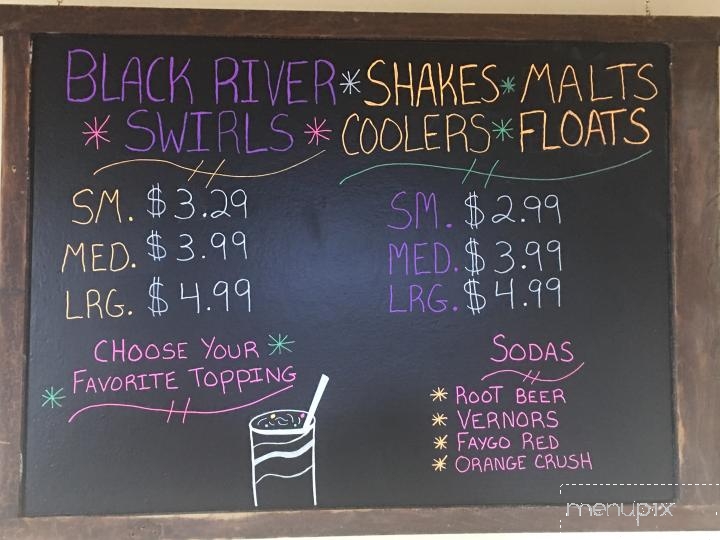 BLACK RIVER
SWIRLS
SM. $3.29
MED. $3.99
LRG. $4.99
CHOOSE YOUR
FAVORITE TOPPING
SHAKES * MALTS
COOLERS * FLOATS
SM. $2.99
MED. $3.99
LRG. $4.99
SODAS
* ROOT BEER
* VERNORS
* FAYGO RED
* ORANGE CRUSH
menupix